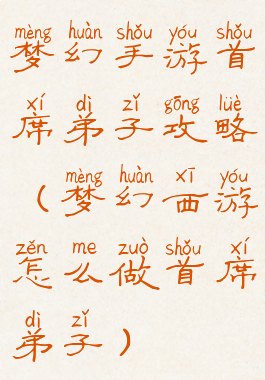 mèng huàn shǒu yóu shǒu
梦幻手游首
xí dì zǐ gōng lüè
席弟子攻略
mèng huàn xī yóu
（梦幻西游
zěn me zuò shǒu xí
怎么做首席
dì zǐ
弟子）